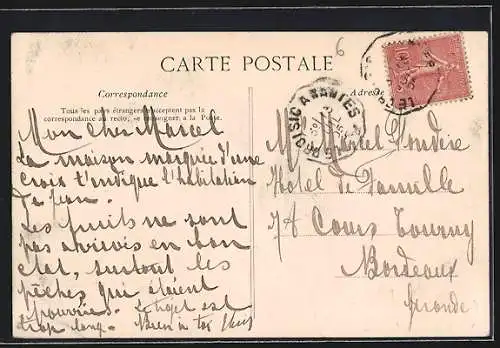 6
CARTE POSTALE
Correspondance
Tous les pays étrangers n'acceptent pas la
correspondance au recto, se renseigner à la Poste.
Adresse
Mon cher Marcel
La maison marquée d'une
croix t'indique l'habitation
de Jean.
Les fruits ne sont
pas arrivés en bon
état, surtout les
pêches qui étaient
pourries. Le trajet est
trop long. Bien à toi
M. Marcel
Hôtel de Famille
74 Cours Tourny
Bordeaux
Gironde
SIC A NANTES
LE CR